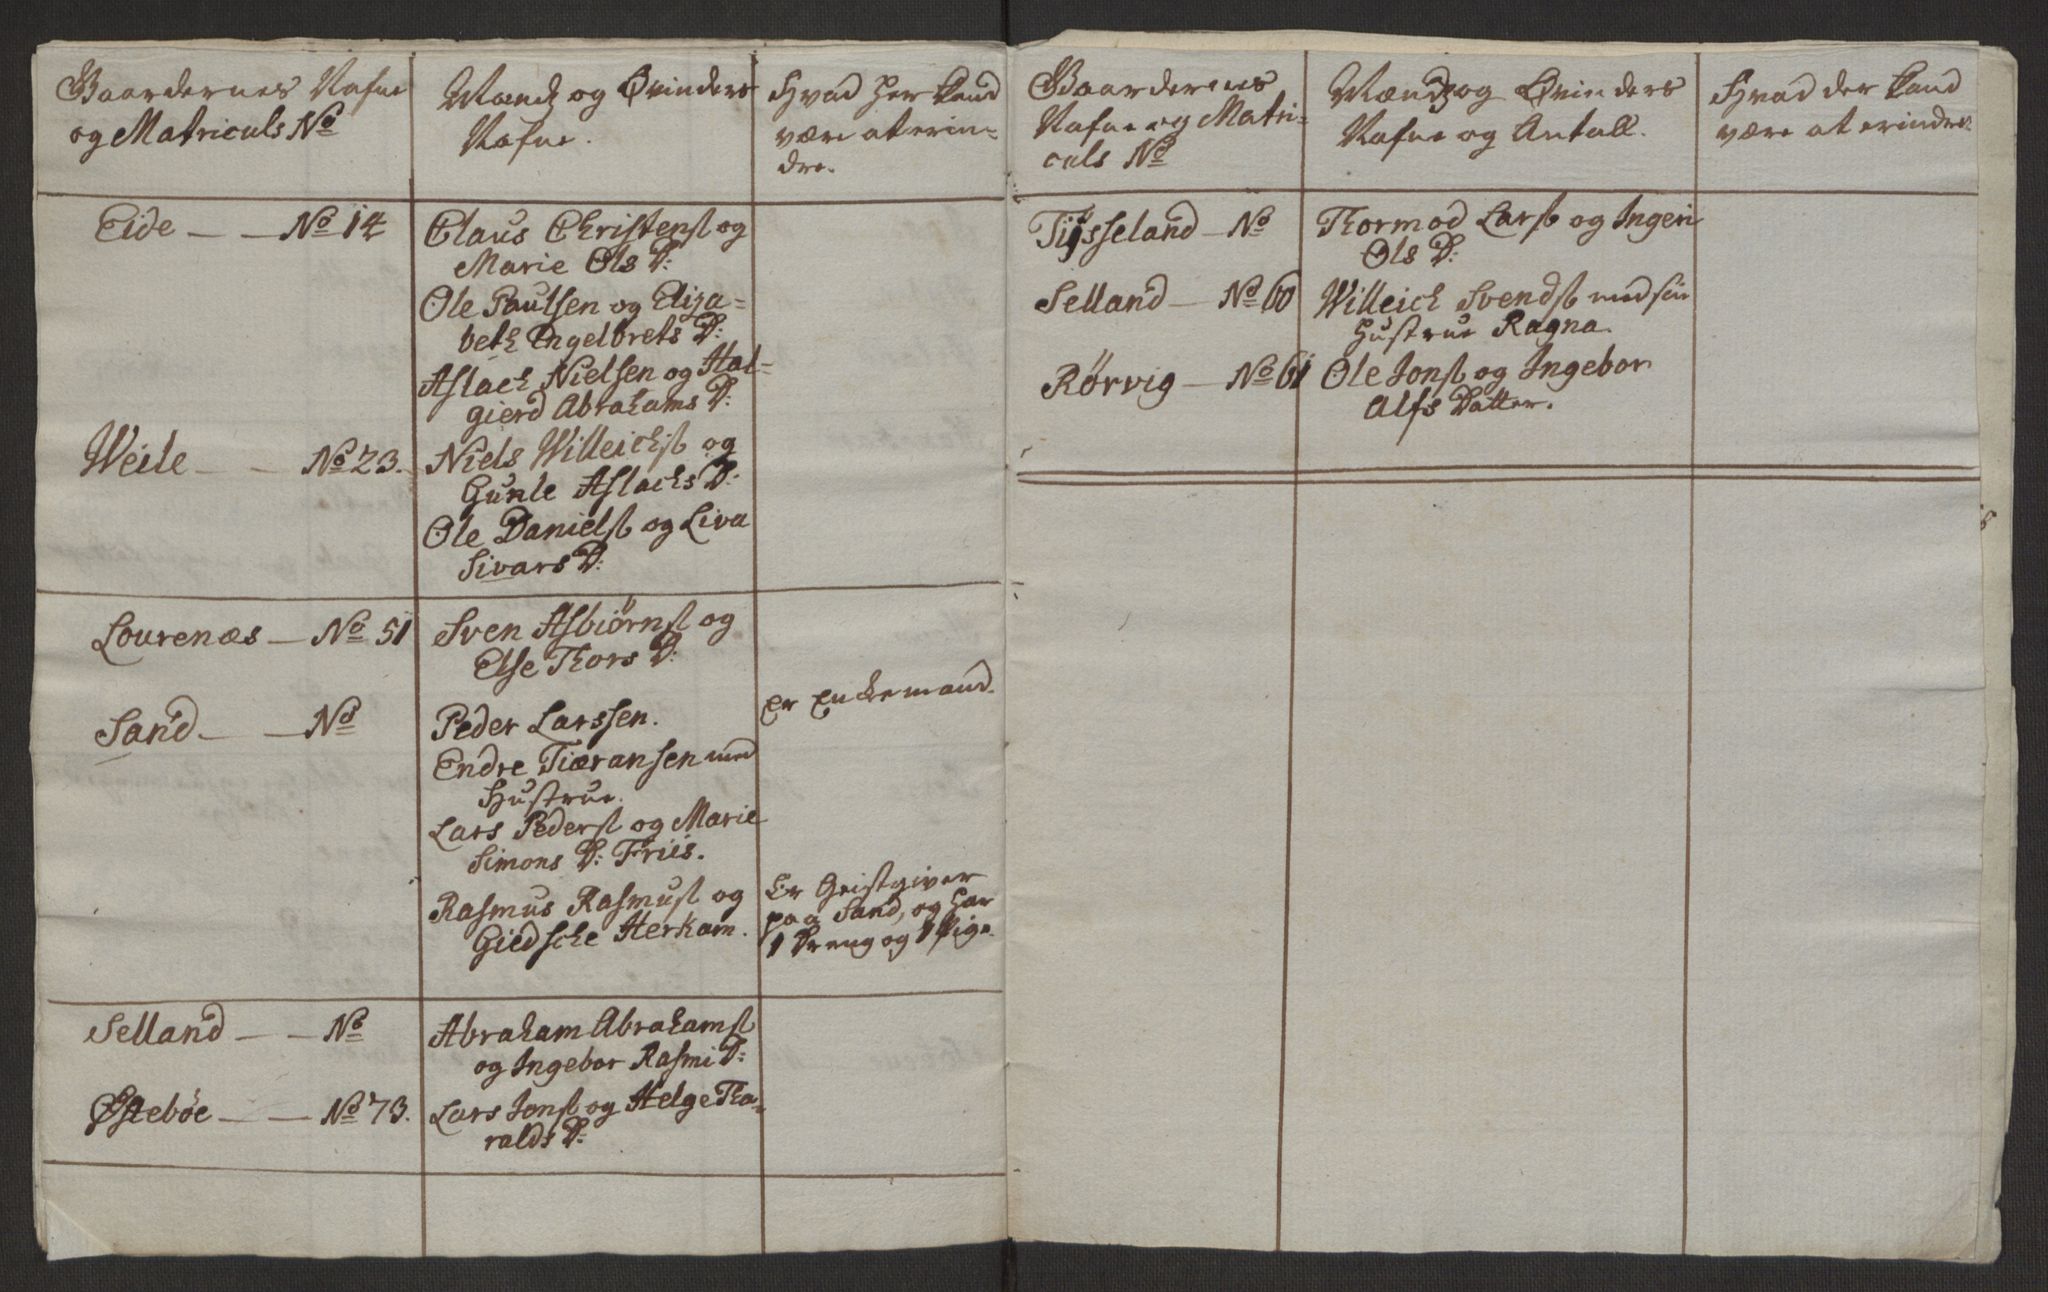 Gaardernes Nafne
og Matriculs No
Mænds og Qvinders
Nafne.
Hvad her kand
være at erin-
dre.
Eide — — No 14
Claus Christenst og
Marie Ols D:
Ole Paulsen og Eliza-
beth Engelbrets D:
Aslach Nielsen og Hal-
gierd Abrahams D:
Weile — — No 23.
Niels Willeichst og
Gunle Aslachs D:
Ole Danielst og Liva
Sivars D:
Lourenæs — No 51
Sven Asbiørnst og
Else Thors D:
Sand — — No
Peder Larssen.
Er Enckemand.
Endre Tiæransen med
Hustrue.
Lars Pederst og Marie
Simons D: Friis.
Rasmus Rasmust og
Giedsche Herkam.
Er Geistgiver
paa Sand, og har
1 Dreng og 1 Pige
Selland — — No
Abraham Abrahamst
og Ingebor Rasmi D:
Østebøe — — No 73.
Lars Jonst og Helge Tha-
ralds D:
Gaardernes
Nafne og Matri-
culs No
Mænds og Qvinders
Nafne og Antall.
Hvad der kand
være at erindre
Tisseland — No
Thormod Larst og Ingeri
Ols D:
Selland — No 60
Willeich Svendst med sin
Hustrue Ragna.
Rørvig — No 61
Ole Jonst og Ingebor
Alfs Datter.